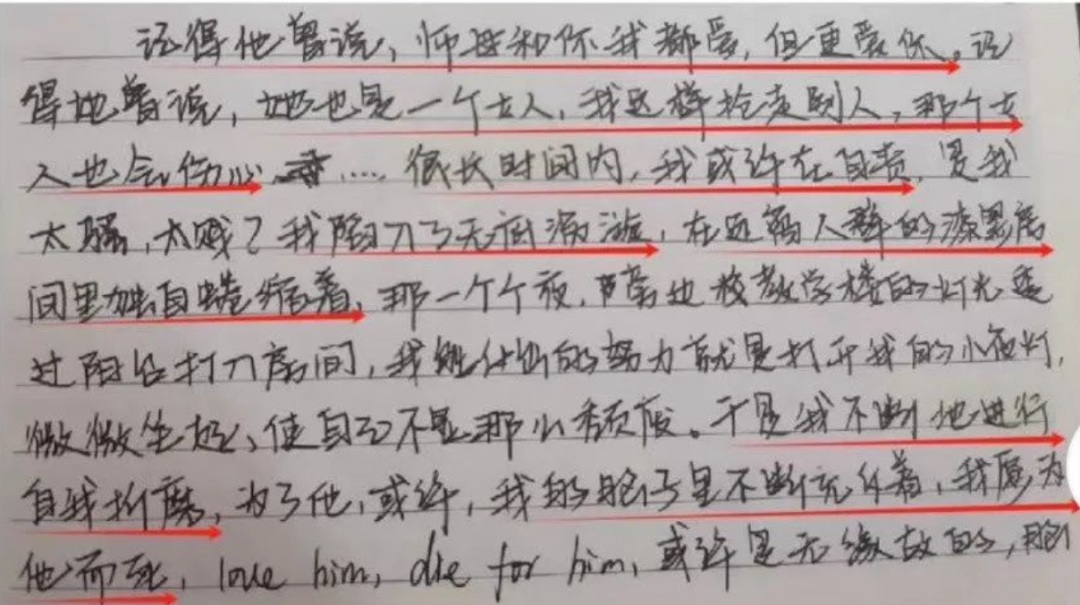 记得他曾说，师母和你我都爱，但更爱你。记
得她曾说，她也是一个女人，我这样抢走别人，那个女
人也会伤心……很长时间内，我或许在自责，是我
太骚，太贱？我陷入了无底漩涡，在远离人群的漆黑房
间里独自蜷缩着，那一个个夜，隔着校教学楼的灯光透
过阳台打入房间，我能付出的努力就是打开我的小夜灯，
微微坐起，使自己不显那么颓废。于是我不断地进行
自我折磨，为了他，或许，我的脑子里不断充斥着，我愿为
他而死，love him, die for him, 或许是无缘故的，脑